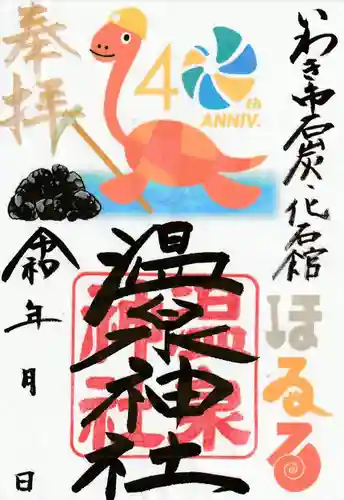 いわき市石炭・化石館
ほるる
40th
ANNIV.
奉拝
温泉神社
温泉
神社
令和
年
月
日